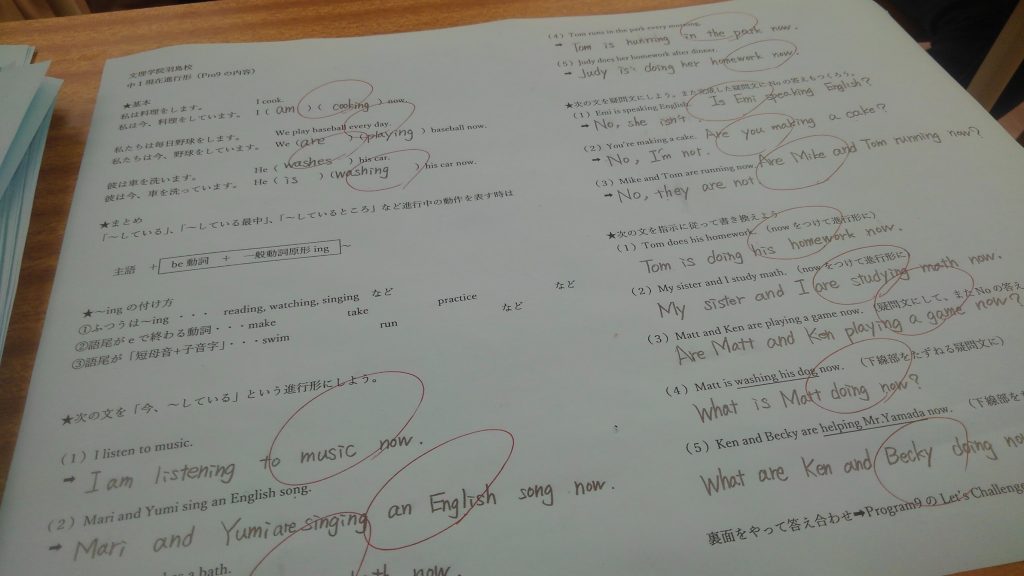 文理学院羽島校
中1現在進行形（Pro9の内容）
★基本
I cook.
私は料理をします。
私は今、料理をしています。 I ( am ) ( cooking ) now.
We play baseball every day.
私たちは毎日野球をします。
私たちは今、野球をしています。 We (are ) (playing ) baseball now.
彼は車を洗います。 He ( washes ) his car.
彼は今、車を洗っています。 He ( is ) (washing ) his car now.
★まとめ
「～している」、「～している最中」、「～しているところ」など進行中の動作を表す時は
主語 + be動詞 + 一般動詞原形 ing ～
★～ing の付け方
①ふつうは～ing ・・・ reading, watching, singing など
②語尾がeで終わる動詞・・・make take practice など
③語尾が「短母音+子音字」・・・swim run など
★次の文を「今、～している」という進行形にしよう。
（1）I listen to music.
➡ I am listening to music now.
（2）Mari and Yumi sing an English song.
➡ Mari and Yumi are singing an English song now.
a bath.
now.
（4）Tom runs in the park every morning.
➡ Tom is running in the park now.
（5）Judy does her homework after dinner.
➡ Judy is doing her homework now.
★次の文を疑問文にしよう。また完成した疑問文にNoの答えもつくろう。
（1）Emi is speaking English. Is Emi speaking English?
➡ No, she isn't.
（2）You're making a cake. Are you making a cake?
➡ No, I'm not.
（3）Mike and Tom are running now. Are Mike and Tom running now?
➡ No, they are not
★次の文を指示に従って書き換えよう
（1）Tom does his homework. （nowをつけて進行形に）
Tom is doing his homework now.
（2）My sister and I study math. （nowをつけて進行形に）
My sister and I are studying math now.
（3）Matt and Ken are playing a game now. （疑問文にして、またNoの答え
Are Matt and Ken playing a game now?
（4）Matt is washing his dog now. （下線部をたずねる疑問文に）
What is Matt doing now?
（5）Ken and Becky are helping Mr.Yamada now. （下線部を
What are Ken and Becky doing now
裏面をやって答え合わせ➡Program9のLet's Challenge